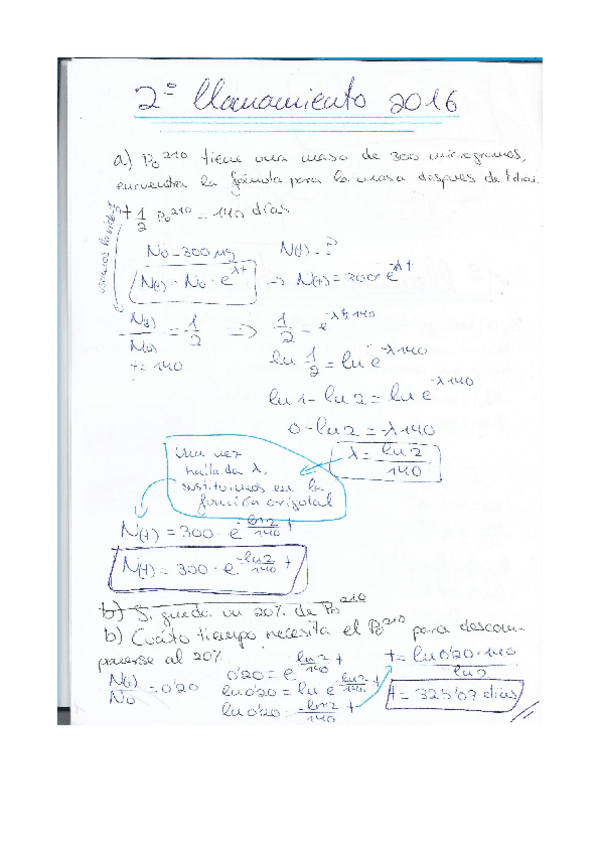 2º llamamiento 2016
a) Po²¹⁰ tiene una masa de 300 microgramos,
encuentra la fórmula para la masa despues de t dias.
t ½ Po²¹⁰ = 140 dias
No = 300 µg N(t) = ?
N(t) = No · e^λt → N(t) = 300 · e^-λt
N(t)/N(o) = 1/2 => 1/2 = e^-λ·140
t = 140
ln 1/2 = ln e^-λ140
ln 1 - ln 2 = ln e^-λ140
0 - ln 2 = -λ140
λ = ln 2/140
Una vez
hallada λ,
sustituimos en la
función original
N(t) = 300 · e^-ln2/140 t
N(t) = 300 · e^-ln2/140 t
b) Si queda un 20% de Po²¹⁰
b) Cuánto tiempo necesita el Po²¹⁰ para descom-
ponerse al 20%
N(t)/No = 0'20
0'20 = e^ln2/140 t
ln 0'20 = ln e^-ln2/140 t
ln 0'20 = -ln2/140 t
t = ln 0'20 · 140/ln 2
t = 325'07 dias